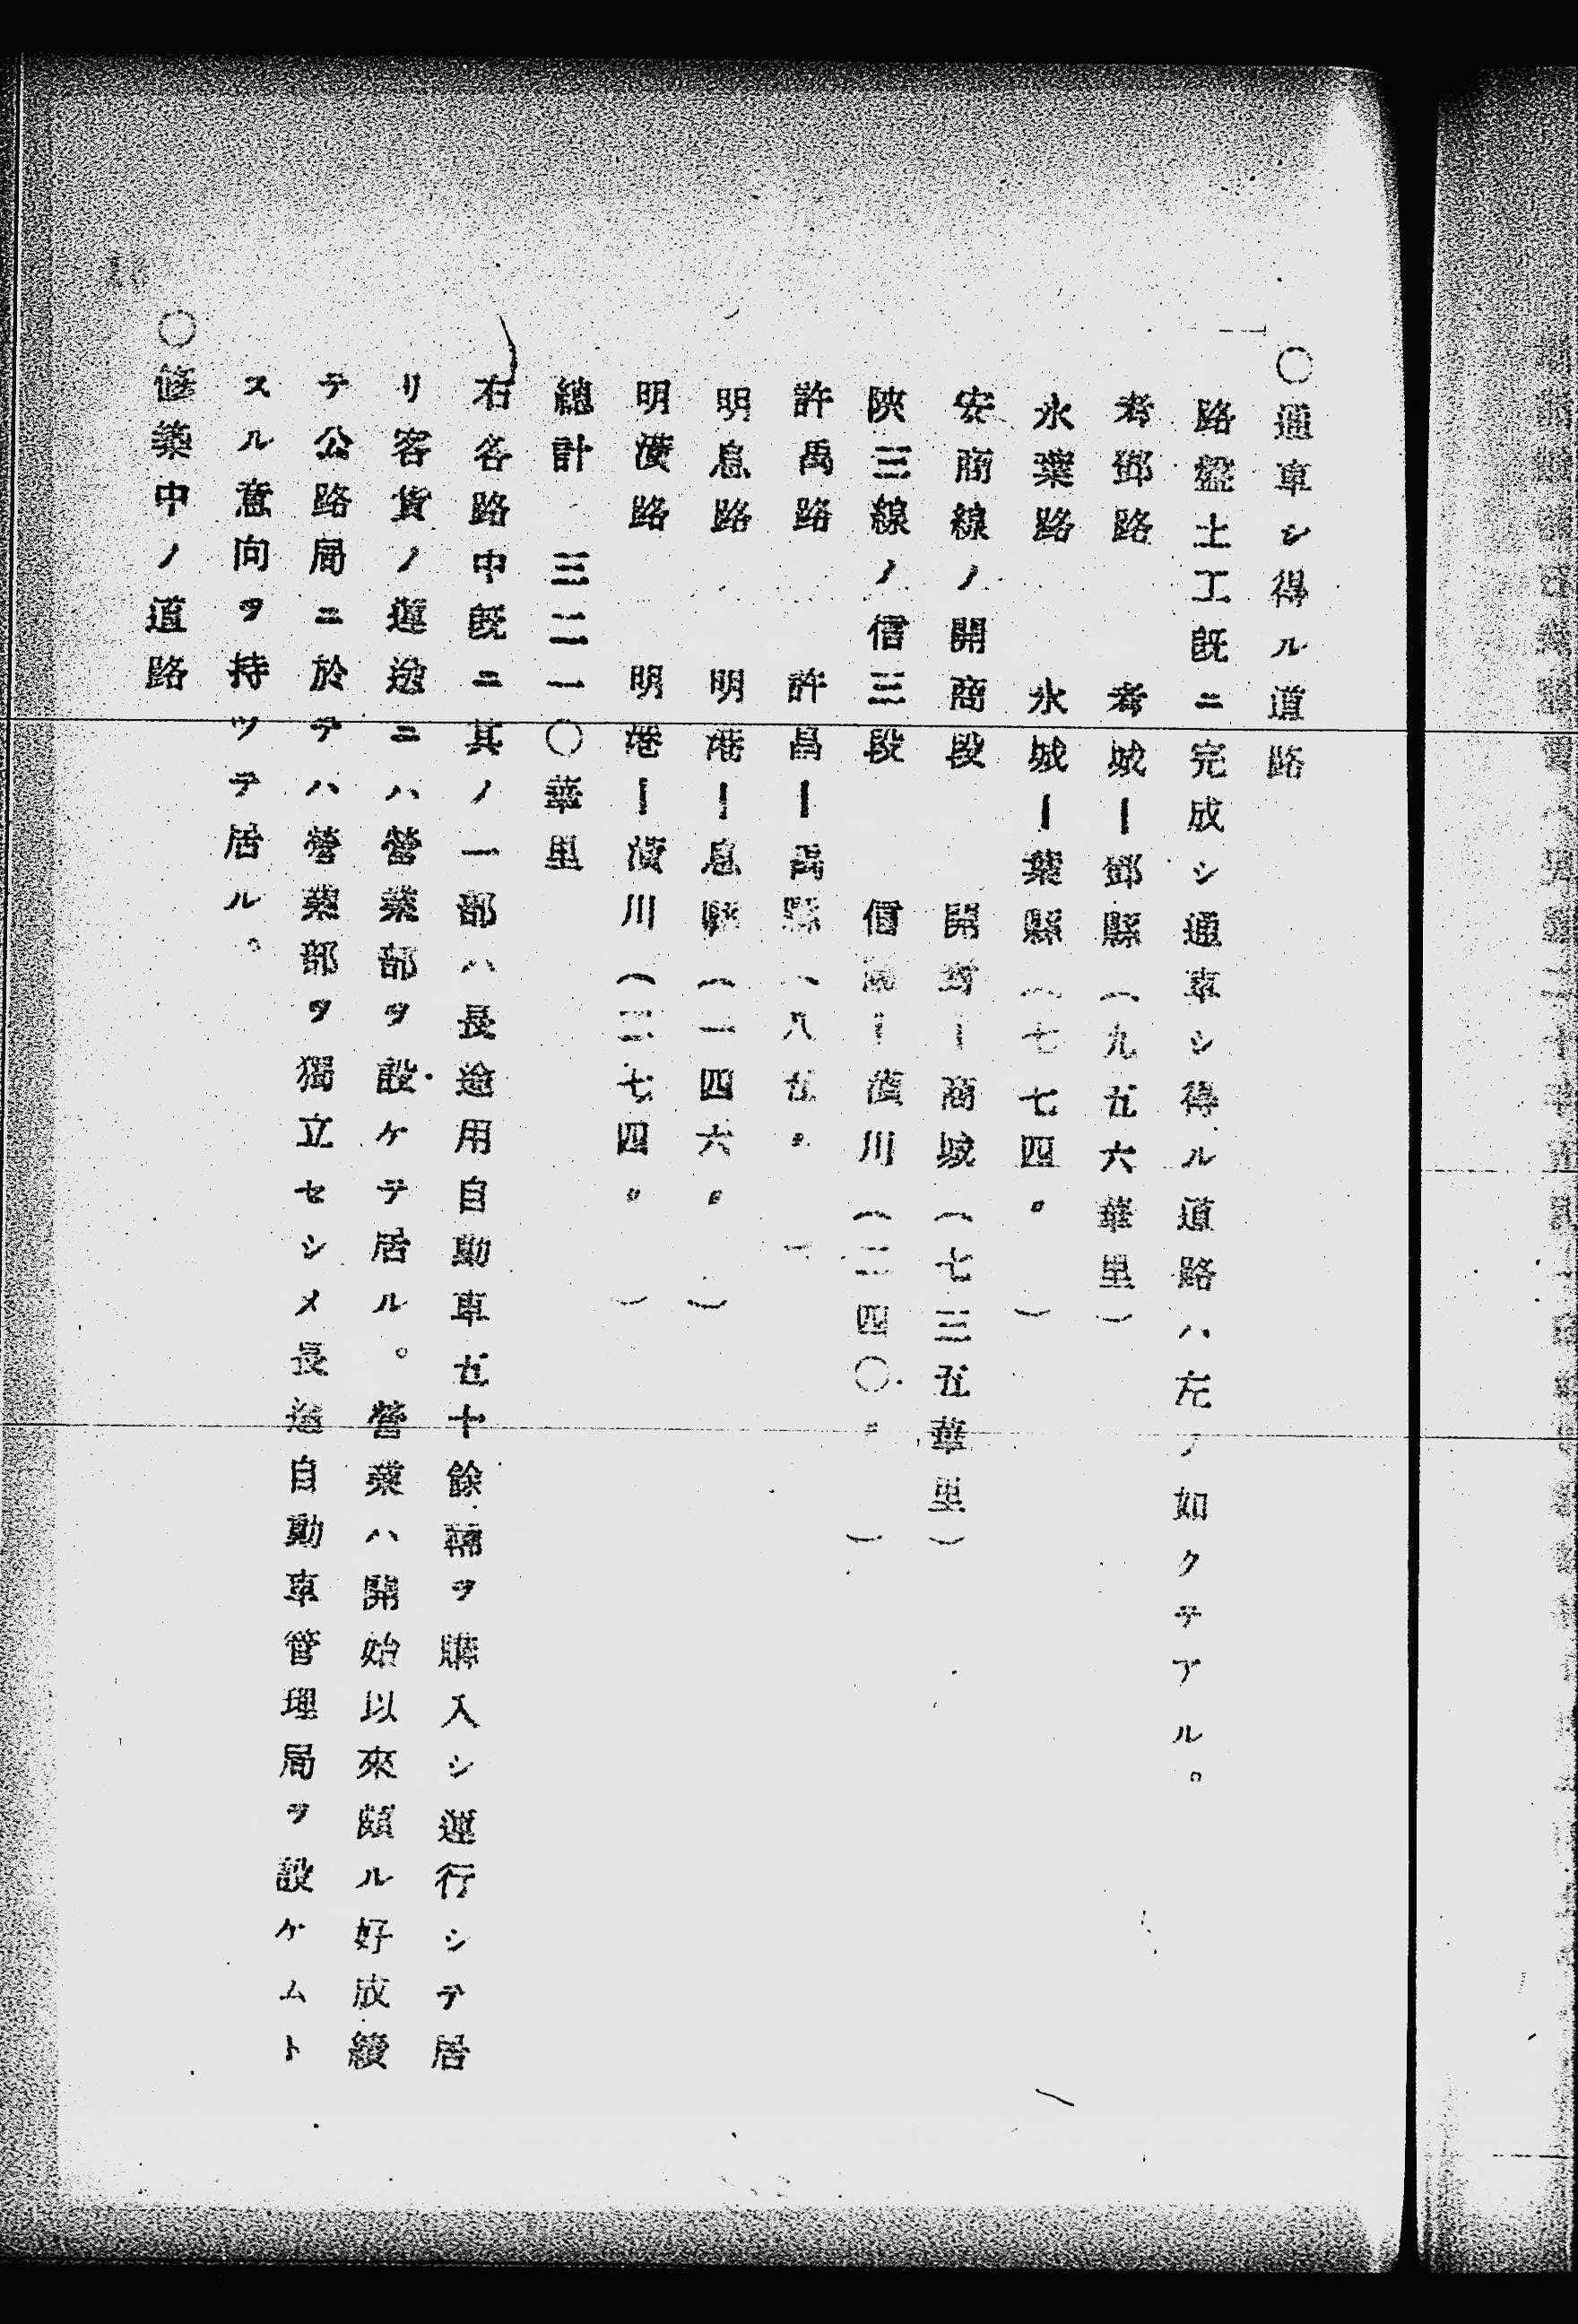 〇通車シ得ル道路
路盤土工既ニ完成シ通車シ得ル道路ハ左ノ如クテアル。
考鄧路　　考城ー鄧縣（九五六華里）
永葉路　　永城ー葉縣（七七四〃　）
安商線ノ開商段　　開封ー商城（七三五華里）
陝三線ノ信三段　　信陽ー潢川（二四〇〃　）
許禹路　　許昌ー禹縣（八五〃　）
明息路　　明港ー息縣（一四六〃　）
明潢路　　明港ー潢川（二七四〃　）
總計　三二一〇華里
右各路中既ニ其ノ一部ハ長途用自動車五十餘輛ヲ購入シ運行シテ居
リ客貨ノ運送ニハ營業部ヲ設ケテ居ル。營業ハ開始以來頗ル好成績
テ公路局ニ於テハ營業部ヲ獨立セシメ長途自動車管理局ヲ設ケムト
スル意向ヲ持ツテ居ル。
〇修築中ノ道路